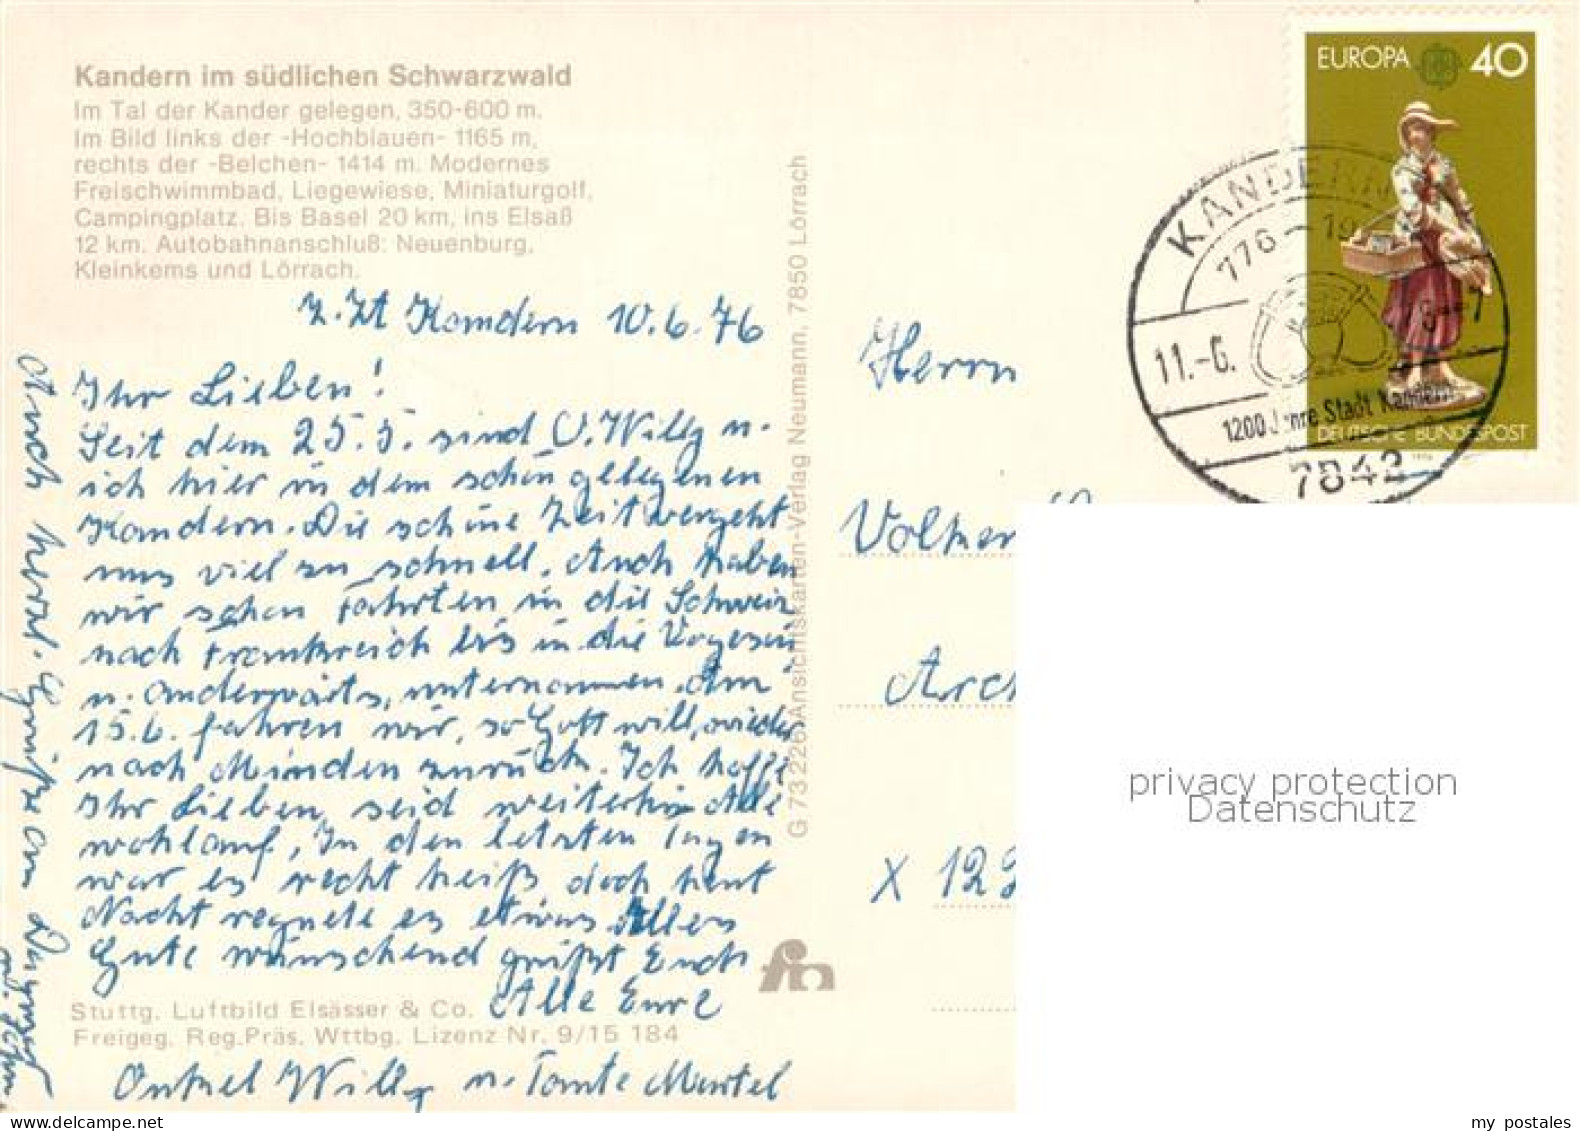 Kandern im südlichen Schwarzwald
Im Tal der Kander gelegen, 350-600 m.
Im Bild links der -Hochblauen- 1165 m,
rechts der -Belchen- 1414 m. Modernes
Freischwimmbad, Liegewiese, Miniaturgolf,
Campingplatz. Bis Basel 20 km, ins Elsaß
12 km. Autobahnanschluß: Neuenburg,
Kleinkems und Lörrach.
z. Zt Kandern 10.6.76
Ihr Lieben!
Seit dem 25.5. sind O. Willy u.
ich hier in dem schön gelegenen
Kandern. Die schöne Zeit vergeht
uns viel zu schnell. Auch haben
wir schon Fahrten in die Schweiz
nach Frankreich bis in die Vogesen
u. anderwärts, unternommen. Am
15.6. fahren wir, so Gott will, wieder
nach Minden zurück. Ich hoffe
Ihr Lieben, seid weiterhin Alle
wohlauf, In den letzten Tagen
war es recht heiß, doch heut
Nacht regnete es etwas Alles
Gute wünschend grüßt Euch
Alle Eure
Onkel Willy u. Tante Martel
Auch herzl. Grüße an
Stuttg. Luftbild Elsässer & Co.
Freigeg. Reg.Präs. Wttbg. Lizenz Nr. 9/15 184
G 73 226 Ansichtskarten-Verlag Neumann, 7850 Lörrach
EUROPA 40
DEUTSCHE BUNDESPOST
KANDERN
776 - 19
11.-6.
1200 Jahre Stadt Kandern
7842
Herrn
Volker
Arch
X 12
privacy protection
Datenschutz
www.delcampe.net
my_postales